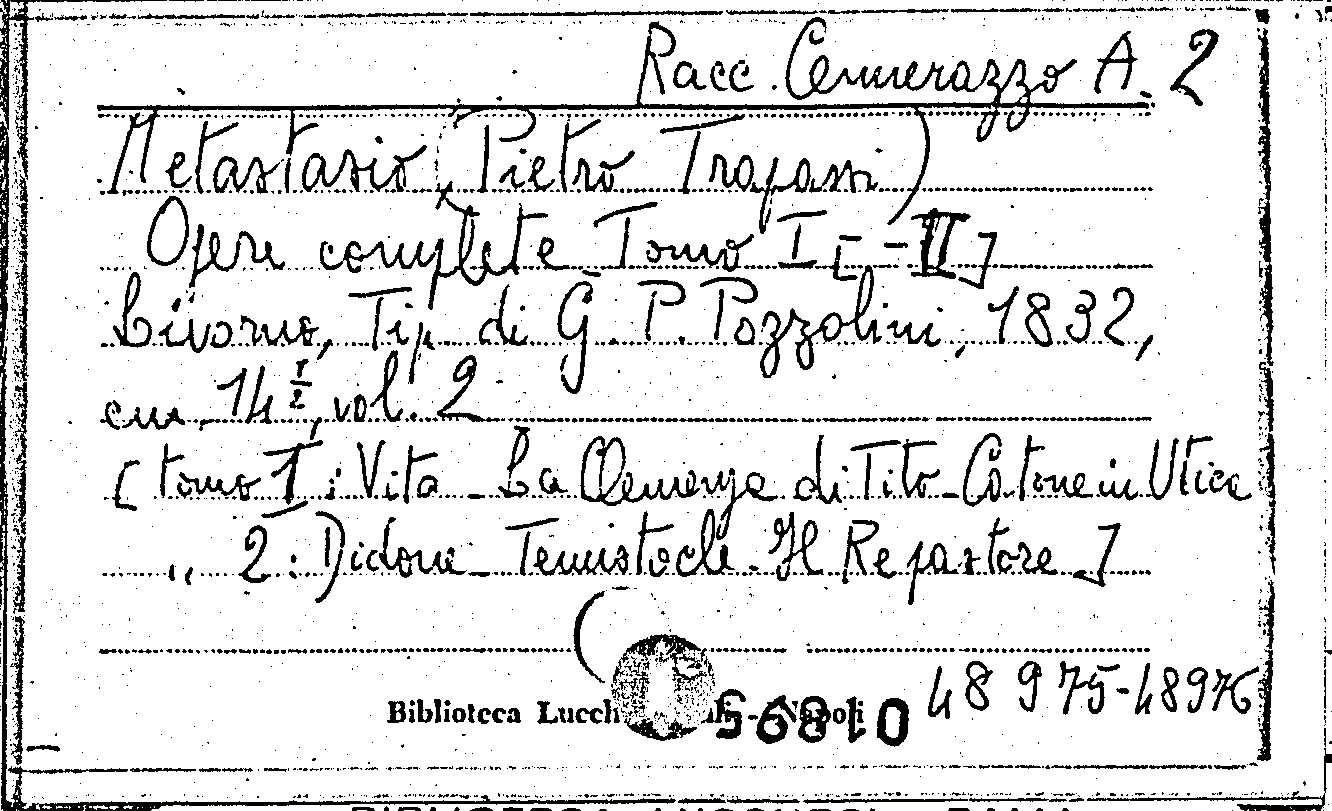 Racc. Cennerazzo A. 2
Metastasio (Pietro Trapassi)
Opere complete_Tomo I [-II]
Livorno, Tip. di G. P. Pozzolini, 1832,
cm. 14 1/2, vol. 2
[tomo I: Vita - La Clemenza di Tito - Catone in Utica
" 2: Didone - Temistocle - Il Re pastore]
Biblioteca Lucch - Napoli
56810
48975-48976